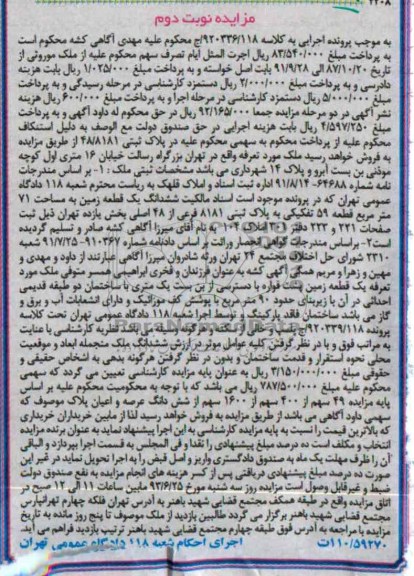 ۲۲۰۸
مزایده نوبت دوم
به موجب پرونده اجرایی به کلاسه ۹۲۰۳۳۶/۱۱۸ج محکوم علیه مهدی آگاهی کشه محکوم است
به پرداخت مبلغ ۸۳/۵۴۰/۰۰۰ ریال اجرت المثل ایام تصرف سهم محکوم علیه از ملک موروثی از
تاریخ ۸۷/۱۰/۲۰ الی ۹۱/۹/۲۸ بابت اصل خواسته و به پرداخت مبلغ ۱/۰۲۵/۰۰۰ ریال بابت هزینه
دادرسی و به پرداخت مبلغ ۲/۰۰۰/۰۰۰ ریال دستمزد کارشناسی در مرحله رسیدگی و به پرداخت
مبلغ ۵/۰۰۰/۰۰۰ ریال دستمزد کارشناسی در مرحله اجرا و به پرداخت مبلغ ۶۰۰/۰۰۰ ریال هزینه
نشر آگهی در دو مرحله مزایده جمعا ۹۲/۱۶۵/۰۰۰ ریال در حق محکوم له داود آگهی و به پرداخت
مبلغ ۴/۵۹۷/۲۵۰ ریال بابت هزینه اجرایی در حق صندوق دولت مع الوصف به دلیل استنکاف
محکوم علیه از پرداخت محکوم به سهمی محکوم علیه در پلاک ثبتی ۴۸/۸۱۸۱ از طریق مزایده
به فروش خواهد رسید ملک مورد تعرفه واقع در تهران بزرگراه رسالت خیابان ۱۶ متری اول کوچه
موذنی بن بست آبرو و پلاک ۱۴ شهرداری می باشد مشخصات ثبتی ملک : ۱- بر اساس مندرجات
نامه شماره ۶۴۶۸۸-۹۱/۸/۱۴ اداره ثبت اسناد و املاک قلهک به ریاست محترم شعبه ۱۱۸ دادگاه
عمومی تهران که در پرونده موجود است اسناد مالکیت ششدانگ یک قطعه زمین به مساحت ۷۱
متر مربع قطعه ۵۹ تفکیکی به پلاک ثبتی ۸۱۸۱ فرعی از ۴۸ اصلی بخش یازده تهران ذیل ثبت
صفحات ۲۲۱ و ۲۲۳ دفتر املاک ۱۰۴ به نام آقای میرزا آگاهی کشه صادر و تسلیم گردیده
است ۲- براساس مندرجات گواهی انحصار وراثت بر اساس دادنامه شماره ۹۱۰۳۶۷-۹۱/۷/۲۵ شعبه
۲۳۱۰ شورای حل اختلاف مجتمع ۲۴ تهران ورثه شادروان میرزا آگاهی عبارتند از داود و مهدی و
مهین و زهرا و مریم همگی آگهی کشه به عنوان فرزندان و فخری ابراهیمی همسر متوفی ملک مورد
تعرفه یک قطعه زمین با قواره با دسترسی از بن بست یک متری با ساختمان دو طبقه قدیمی
احداثی در آن با زیربنای حدود ۹۰ متر مربع با پوشش کف موزائیک و دارای انشعابات آب و برق و
گاز می باشد ساختمان فاقد پارکینگ و توسط اجرا شعبه ۱۱۸ دادگاه عمومی تهران تحت کلاسه
پرونده ۹۲۰۳۳۹/۱۱۸ج
به مراتب فوق و با در نظر گرفتن کلیه عوامل موثر در ارزش ششدانگ ملک منجمله ابعاد و موقعیت
محلی نحوه استقرار و قدمت ساختمان و بدون در نظر گرفتن هرگونه بدهی به اشخاص حقیقی و
حقوقی مبلغ ۳/۱۵۰/۰۰۰/۰۰۰ ریال به عنوان پایه مزایده کارشناسی تعیین می گردد که سهمی
محکوم علیه مبلغ ۷۸۷/۵۰۰/۰۰۰ ریال می باشد که با توجه به محکومیت محکوم علیه بر اساس
پایه مزایده ۴۹ سهم از ۴۰۰ سهم از ۱۶۰۰ سهم از شش دانگ عرصه و اعیان پلاک موصوف که
سهمی داود آگاهی می باشد از طریق مزایده به فروش خواهد رسید لذا از مابین خریداران خریداری
که بالاترین قیمت را نسبت به پایه مزایده کارشناسی به این اجرا پیشنهاد نماید به عنوان برنده مزایده
انتخاب و مکلف است ده درصد مبلغ پیشنهادی را نقدا و فی المجلس به قسمت اجرا بپردازد و الباقی
آن را ظرف مهلت یک ماه به صندوق دادگستری واریز و اصل فیش را به اجرا تحویل نماید در غیر این
صورت ده درصد مبلغ پیشنهادی دریافتی پس از کسر هزینه های انجام مزایده به نفع صندوق دولت
ضبط و غیرقابل وصول است مزایده روز سه شنبه مورخ ۹۳/۶/۲۵ مابین ساعات ۱۱ الی ۱۲ صبح در
اتاق مزایده واقع در طبقه همکف مجتمع قضایی شهید باهنر به آدرس تهران فلکه چهارم تهرانپارس
مجتمع قضایی شهید باهنر برگزار می گردد طالبین بازدید از ملک موصوف تا پنج روز مانده به تاریخ
مزایده با مراجعه به آدرس فوق طبقه چهارم مجتمع قضایی شهید باهنر ترتیب بازدید فراهم می آید
۱۱۰/۵۹۲۷۰ت اجرای احکام شعبه ۱۱۸ دادگاه عمومی تهران